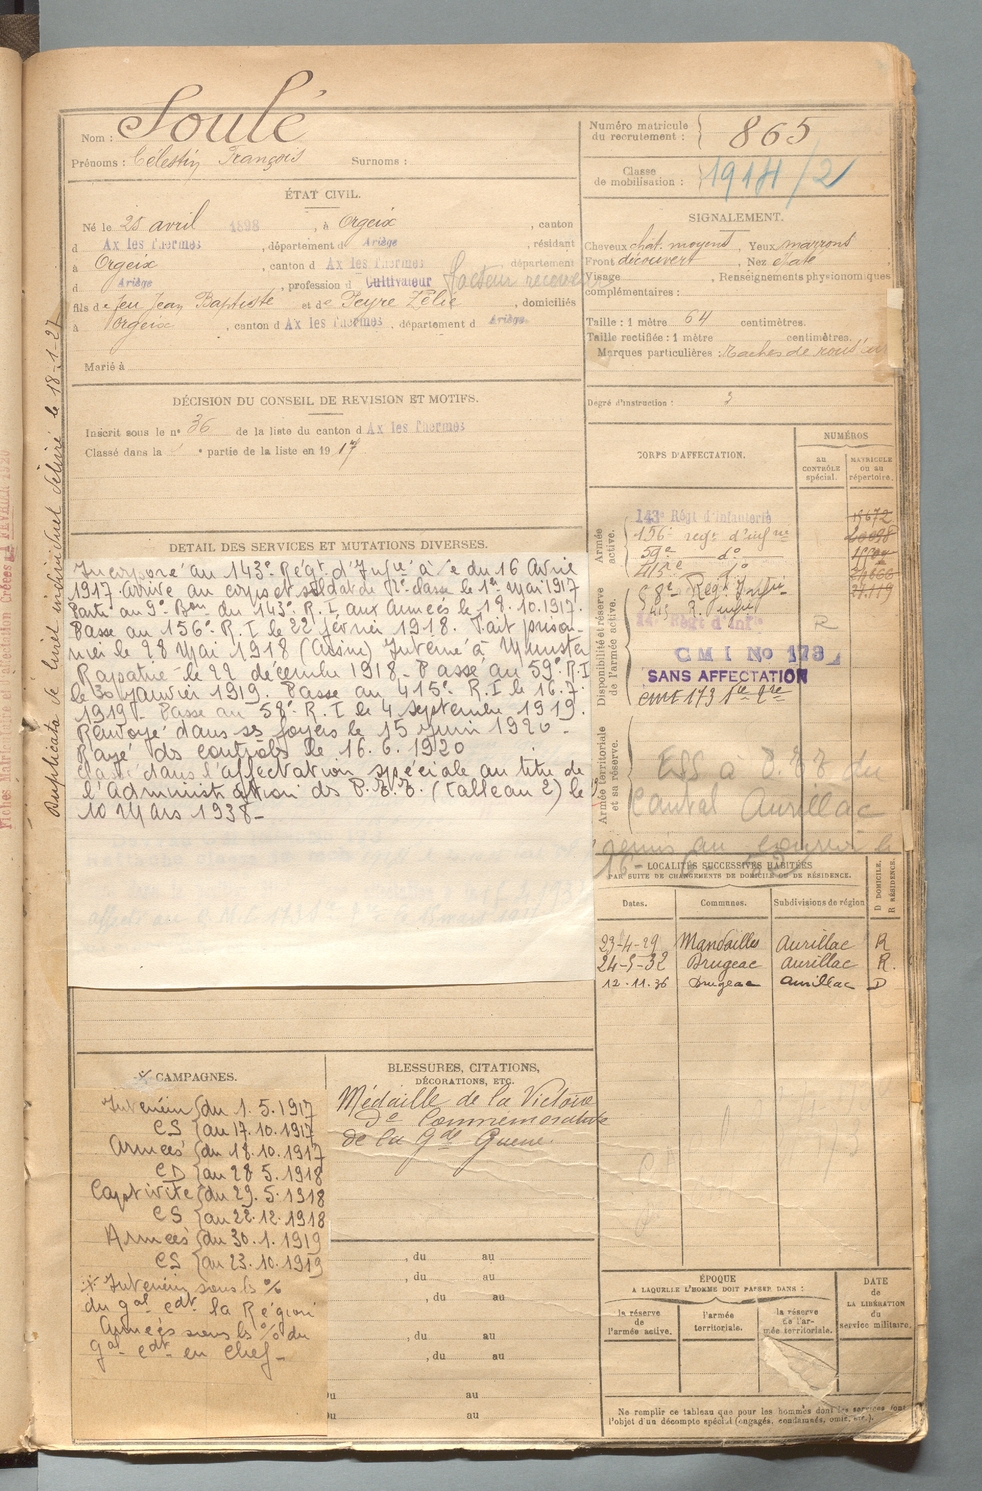 Nom : Soulé
Prénoms : Célestin François Surnoms :
Numéro matricule du recrutement : 865
Classe de mobilisation : 1914/2
ÉTAT CIVIL.
Né le 28 avril 1898, à Orgeix, canton
d Ax les Thermes, département d Ariège, résidant
à Orgeix, canton d Ax les Thermes, département
d Ariège, profession d Cultivateur facteur receveur
fils de feu Jean Baptiste et de Peyre Zélie, domiciliés
à Orgeix, canton d Ax les Thermes, département d Ariège
Marié à
SIGNALEMENT.
Cheveux chat. moyens, Yeux marrons
Front découvert, Nez
Visage, Renseignements physionomiques
complémentaires :
Taille : 1 mètre 64 centimètres.
Taille rectifiée : 1 mètre centimètres.
Marques particulières : Taches de
Degré d'instruction : 2
DÉCISION DU CONSEIL DE REVISION ET MOTIFS.
Inscrit sous le nº 36 de la liste du canton d Ax les Thermes
Classé dans la e partie de la liste en 1917
Duplicata de livret individuel délivré le 18-1-27
DETAIL DES SERVICES ET MUTATIONS DIVERSES.
Incorporé au 143e Régt d'Infie à c/ du 16 Avril
1917. Arrivé au corps et soldat de 2e classe le 1er Mai 1917
Parti au 9e Bon du 143e R.I aux Armées le 18.10.1917.
Passé au 156e R.I le 22 février 1918. Fait prison-
nier le 28 Mai 1918 (Aisne) Interné à Munster
Rapatrié le 22 décembre 1918. Passé au 59e R.I
le 30 Janvier 1919. Passé au 415e R.I le 16.7.
1919. Passé au 58e R.I le 4 septembre 1919.
Renvoyé dans ses foyers le 15 Juin 1920.
Rayé des contrôles le 16.6.1920
Classé dans l'affectation spéciale au titre de
l'Administration des P.T.T. (Tableau 2) le
10 Mars 1938-
CORPS D'AFFECTATION.
NUMÉROS
AU CONTRÔLE spécial.
MATRICULE ou au répertoire.
Armée active.
143e Régt d'Infanterie
156e régt d'infrie
59e do
415e do
Disponibilité et réserve de l'armée active.
58e Régt Infie
R
C M I No 173
SANS AFFECTATION
Armée territoriale et sa réserve.
P.T.T du
Cantal Aurillac
LOCALITÉS SUCCESSIVES HABITÉES
PAR SUITE DE CHANGEMENTS DE DOMICILE OU DE RÉSIDENCE.
Dates. Communes. Subdivisions de région D DOMICILE. R RÉSIDENCE.
23-4-29 Mandailles Aurillac R
24-5-32 Brageac Aurillac R.
12.11.36 Brageac Aurillac D
CAMPAGNES.
Intérieur du 1.5.1917
CS au 17.10.1917
Armées du 18.10.1917
CD au 28 5.1918
Captivité du 29.5.1918
CS au 22.12.1918
Armées du 30.1.1919
CS au 23.10.1919
Intérieur sous ls %
du gal cdt la Région
Armées sous ls % du
gal cdt en Chef-
BLESSURES, CITATIONS,
DÉCORATIONS, ETC.
Médaille de la Victoire
do Commémorative
de la Gde Guerre.
, du au
, du au
, du au
, du au
, du au
du au
du au
ÉPOQUE
A LAQUELLE L'HOMME DOIT PASSER DANS :
la réserve de l'armée active.
l'armée territoriale.
la réserve de l'armée territoriale.
DATE DE LA LIBÉRATION du service militaire.
Ne remplir ce tableau que pour les hommes dont les services font
l'objet d'un décompte spécial (engagés, condamnés, omis, etc.).